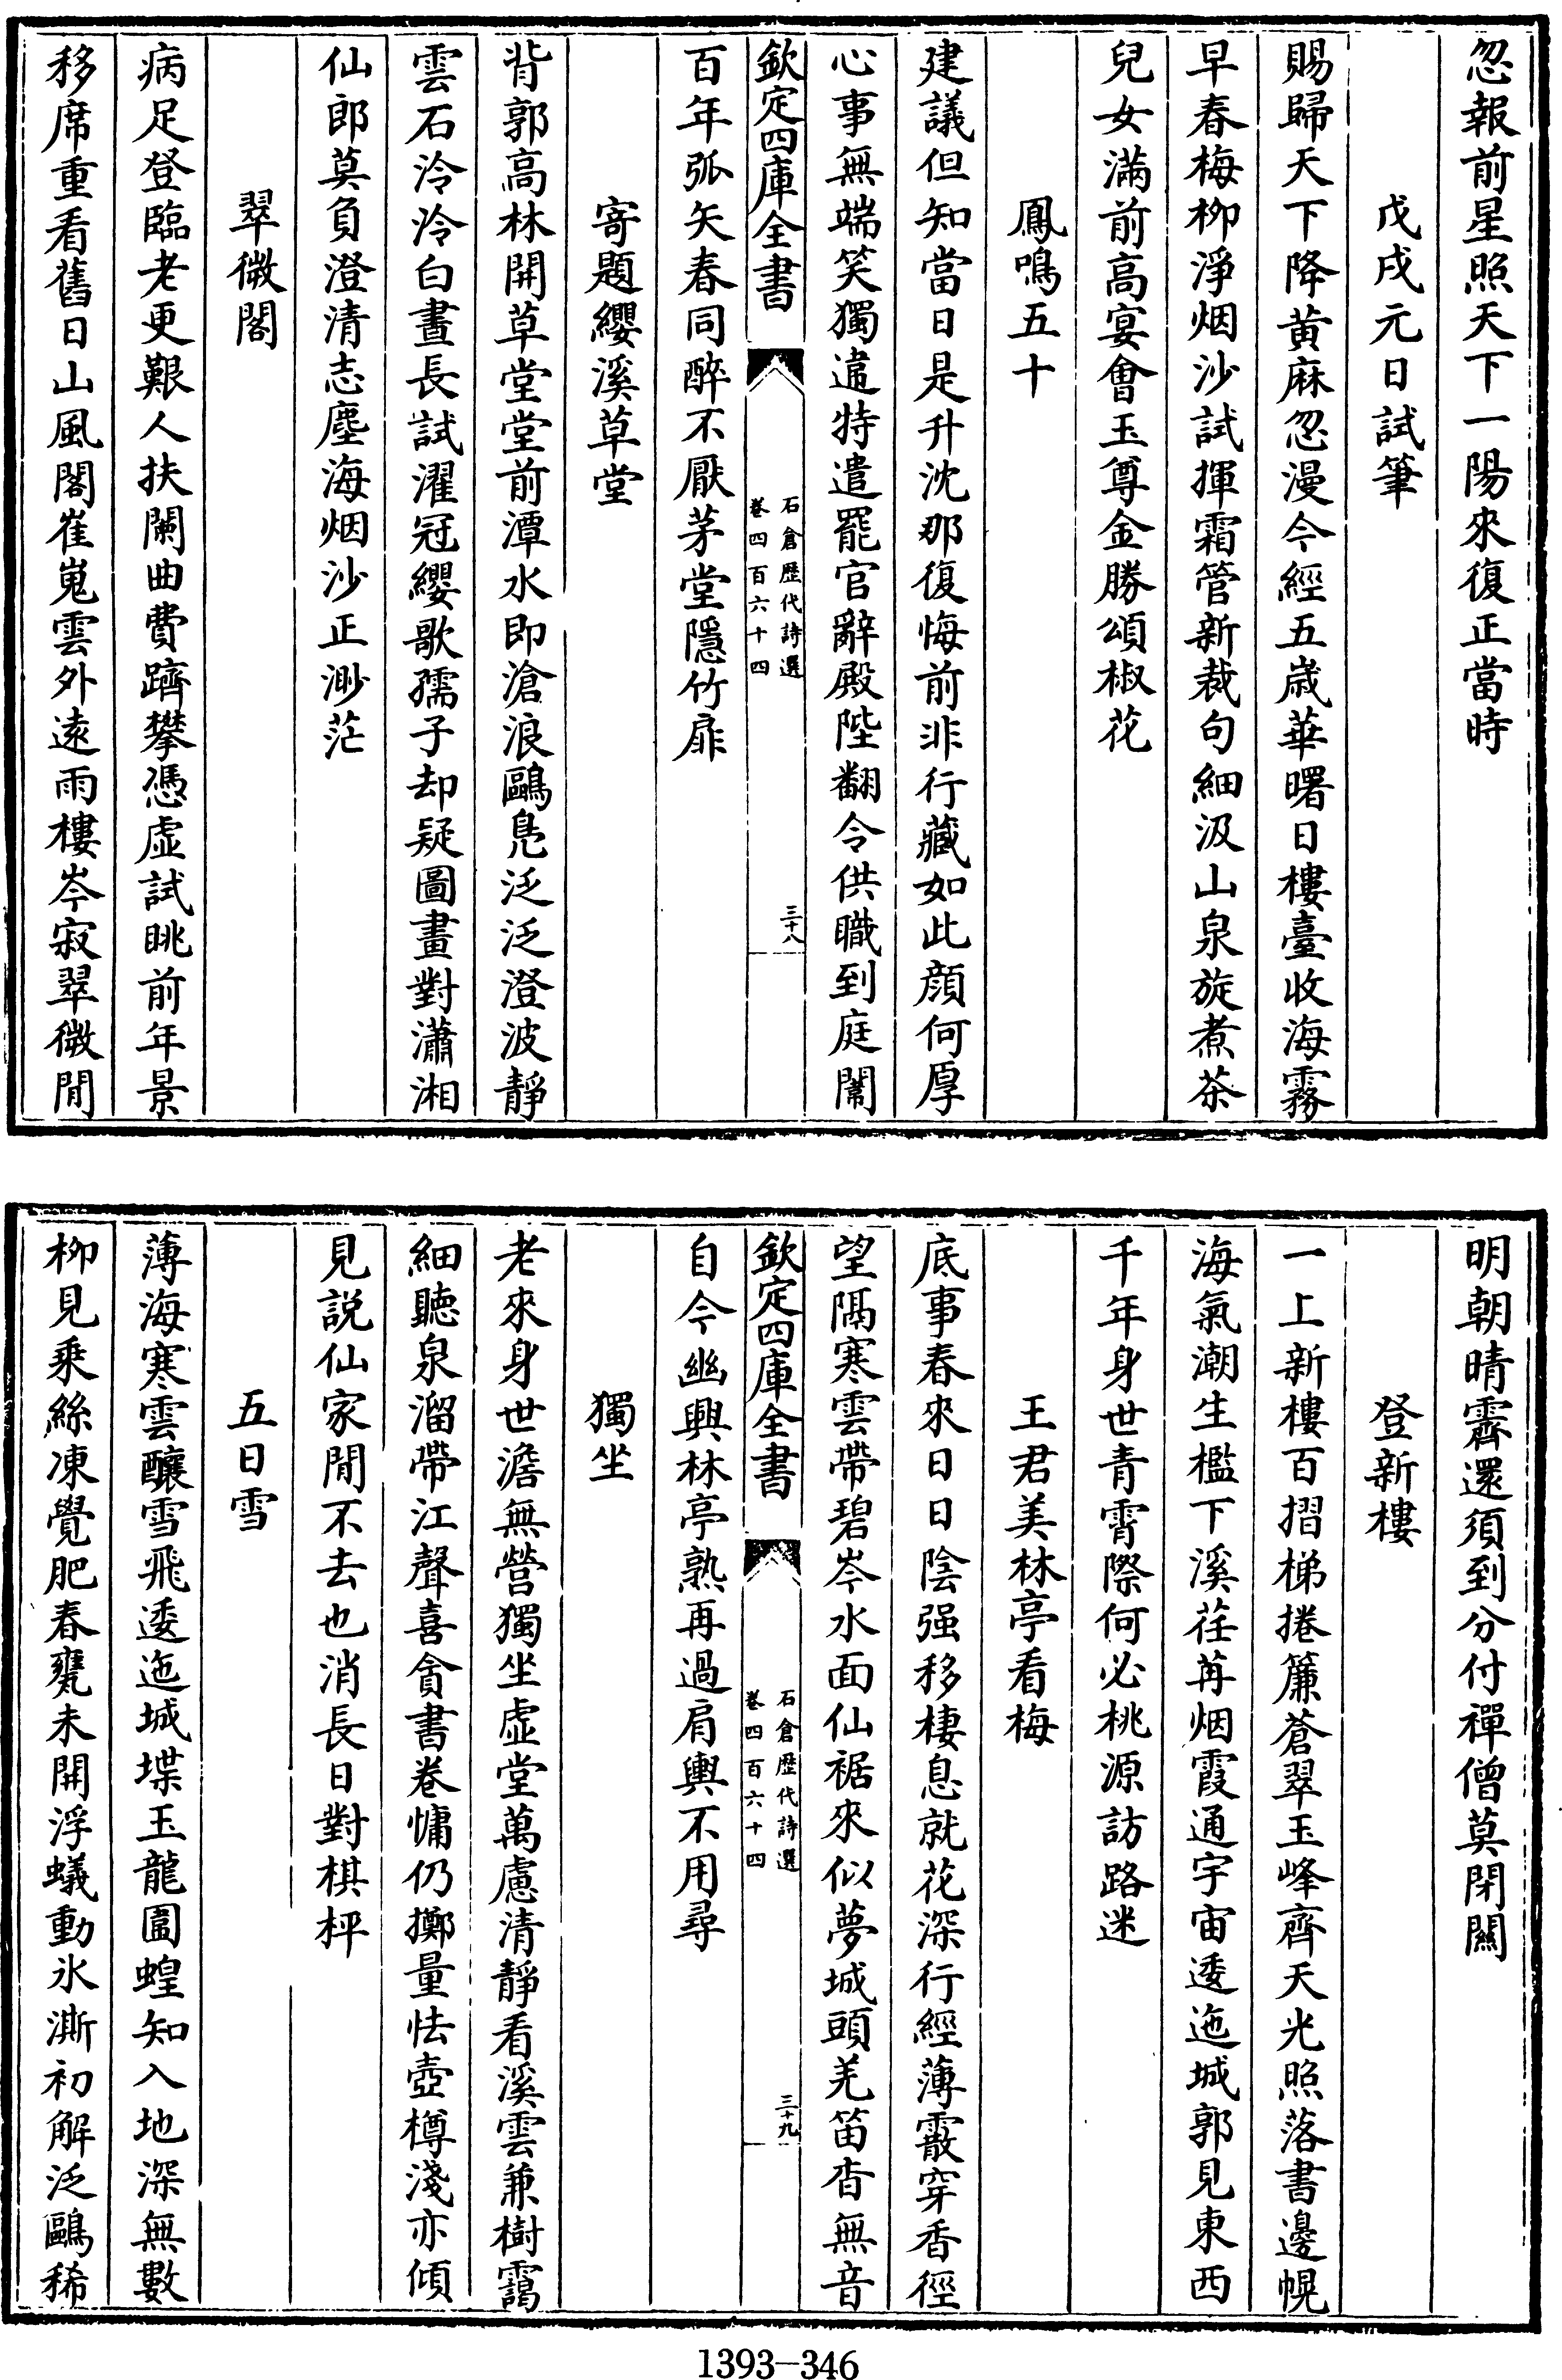 忽報前星照天下一陽來復正當時
戊戌元日試筆
賜歸天下降黄麻忽漫今經五歲華曙日樓臺收海霧
早春梅柳淨烟沙試揮霜管新裁句細汲山泉旋煮茶
兒女滿前高宴會玉尊金勝頌椒花
鳳鳴五十
建議但知當日是升沈那復悔前非行藏如此顔何厚
心事無端笑獨違特遣罷官辭殿陛翻令供職到庭闈
欽定四庫全書
石倉歴代詩選
卷四百六十四
三十八
百年弧矢春同醉不厭茅堂隱竹扉
寄題纓溪草堂
背郭高林開草堂堂前潭水即滄浪鷗鳧泛泛澄波靜
雲石泠泠白晝長試濯冠纓歌孺子却疑圖畫對瀟湘
仙郎莫負澄清志塵海烟沙正渺茫
翠微閣
病足登臨老更艱人扶闌曲費躋攀憑虛試眺前年景
移席重看舊日山風閣崔嵬雲外逺雨樓岑寂翠微間
明朝晴霽還須到分付禪僧莫閉闗
登新樓
一上新樓百摺梯捲簾蒼翠玉峰齊天光照落書邊幌
海氣潮生檻下溪荏苒烟霞通宇宙逶迤城郭見東西
千年身世青霄際何必桃源訪路迷
王君美林亭看梅
底事春來日日陰强移棲息就花深行經薄霰穿香徑
望隔寒雲帶碧岑水面仙裾來似夢城頭羌笛杳無音
欽定四庫全書
石倉歴代詩選
卷四百六十四
三十九
自今幽興林亭熟再過肩輿不用尋
獨坐
老來身世澹無營獨坐虛堂萬慮清靜看溪雲兼樹靄
細聽泉溜帶江聲喜貪書卷慵仍擲量怯壺樽淺亦傾
見説仙家閒不去也消長日對棋枰
五日雪
薄海寒雲釀雪飛逶迤城堞玉龍圍蝗知入地深無數
柳見乗絲凍覺肥春甕未開浮蟻動氷澌初解泛鷗稀
1393-346